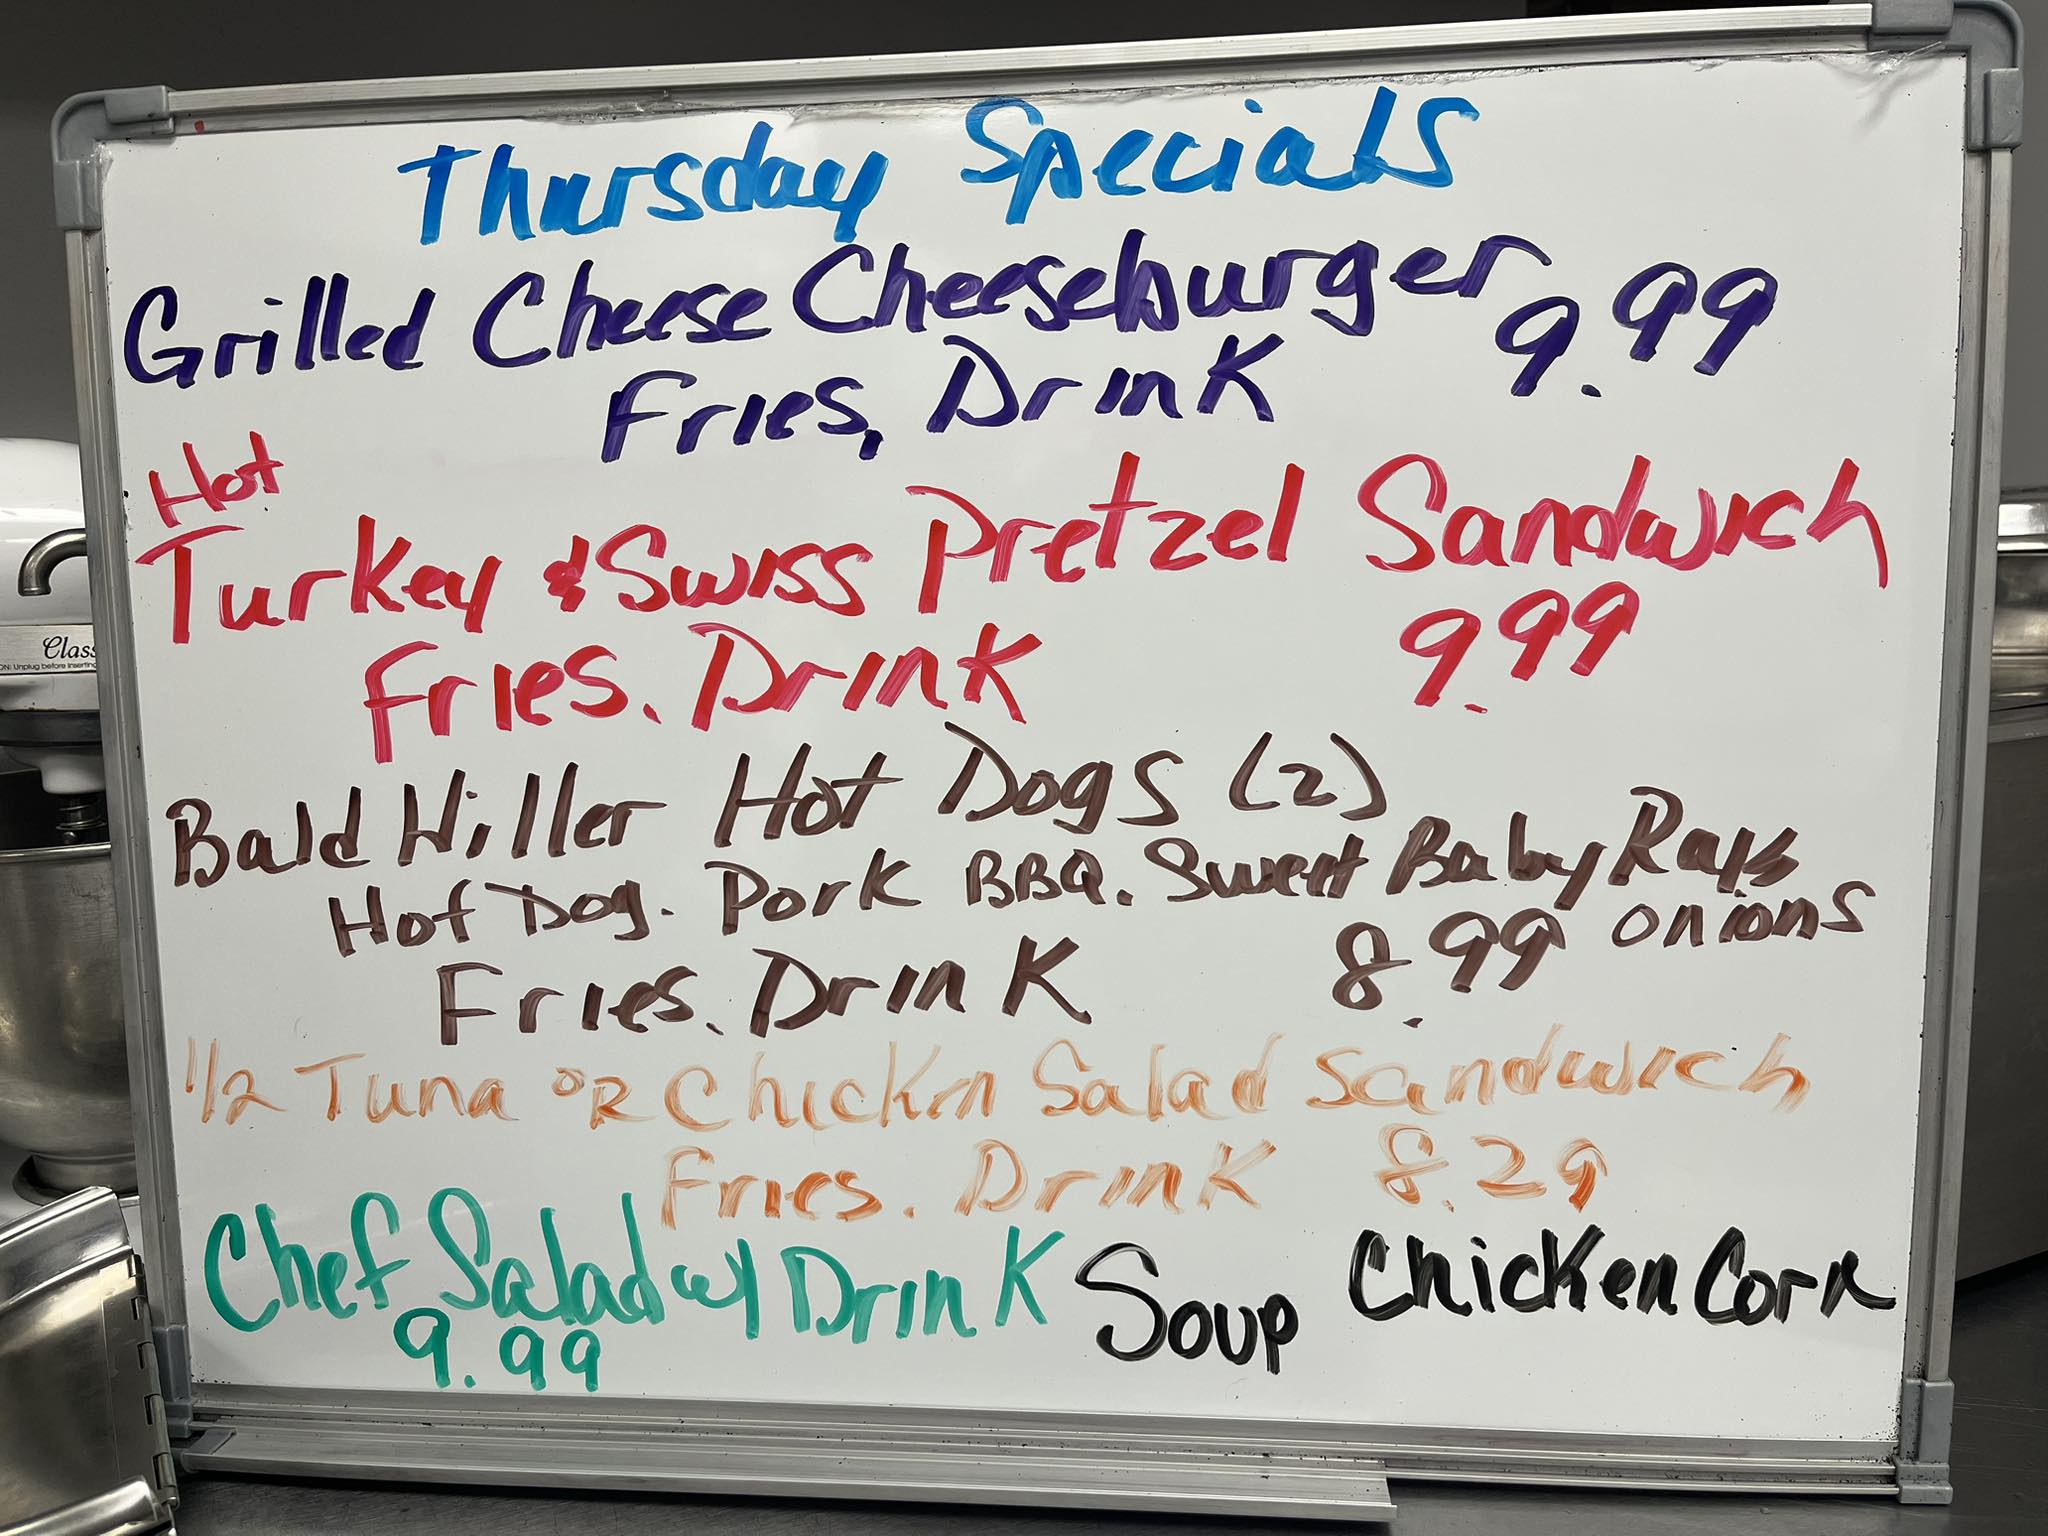 Thursday Specials
Grilled Cheese Cheeseburger 9.99
Fries, Drink
Hot
Turkey & Swiss Pretzel Sandwich
Fries. Drink 9.99
Bald Hiller Hot Dogs (2)
Hot Dog. Pork BBQ. Sweet Baby Rays
onions
Fries. Drink 8.99
1/2 Tuna OR Chicken Salad Sandwich
Fries. Drink 8.29
Chef Salad w/ Drink
9.99
Soup Chicken Corn
Class
ON: Unplug before inserting